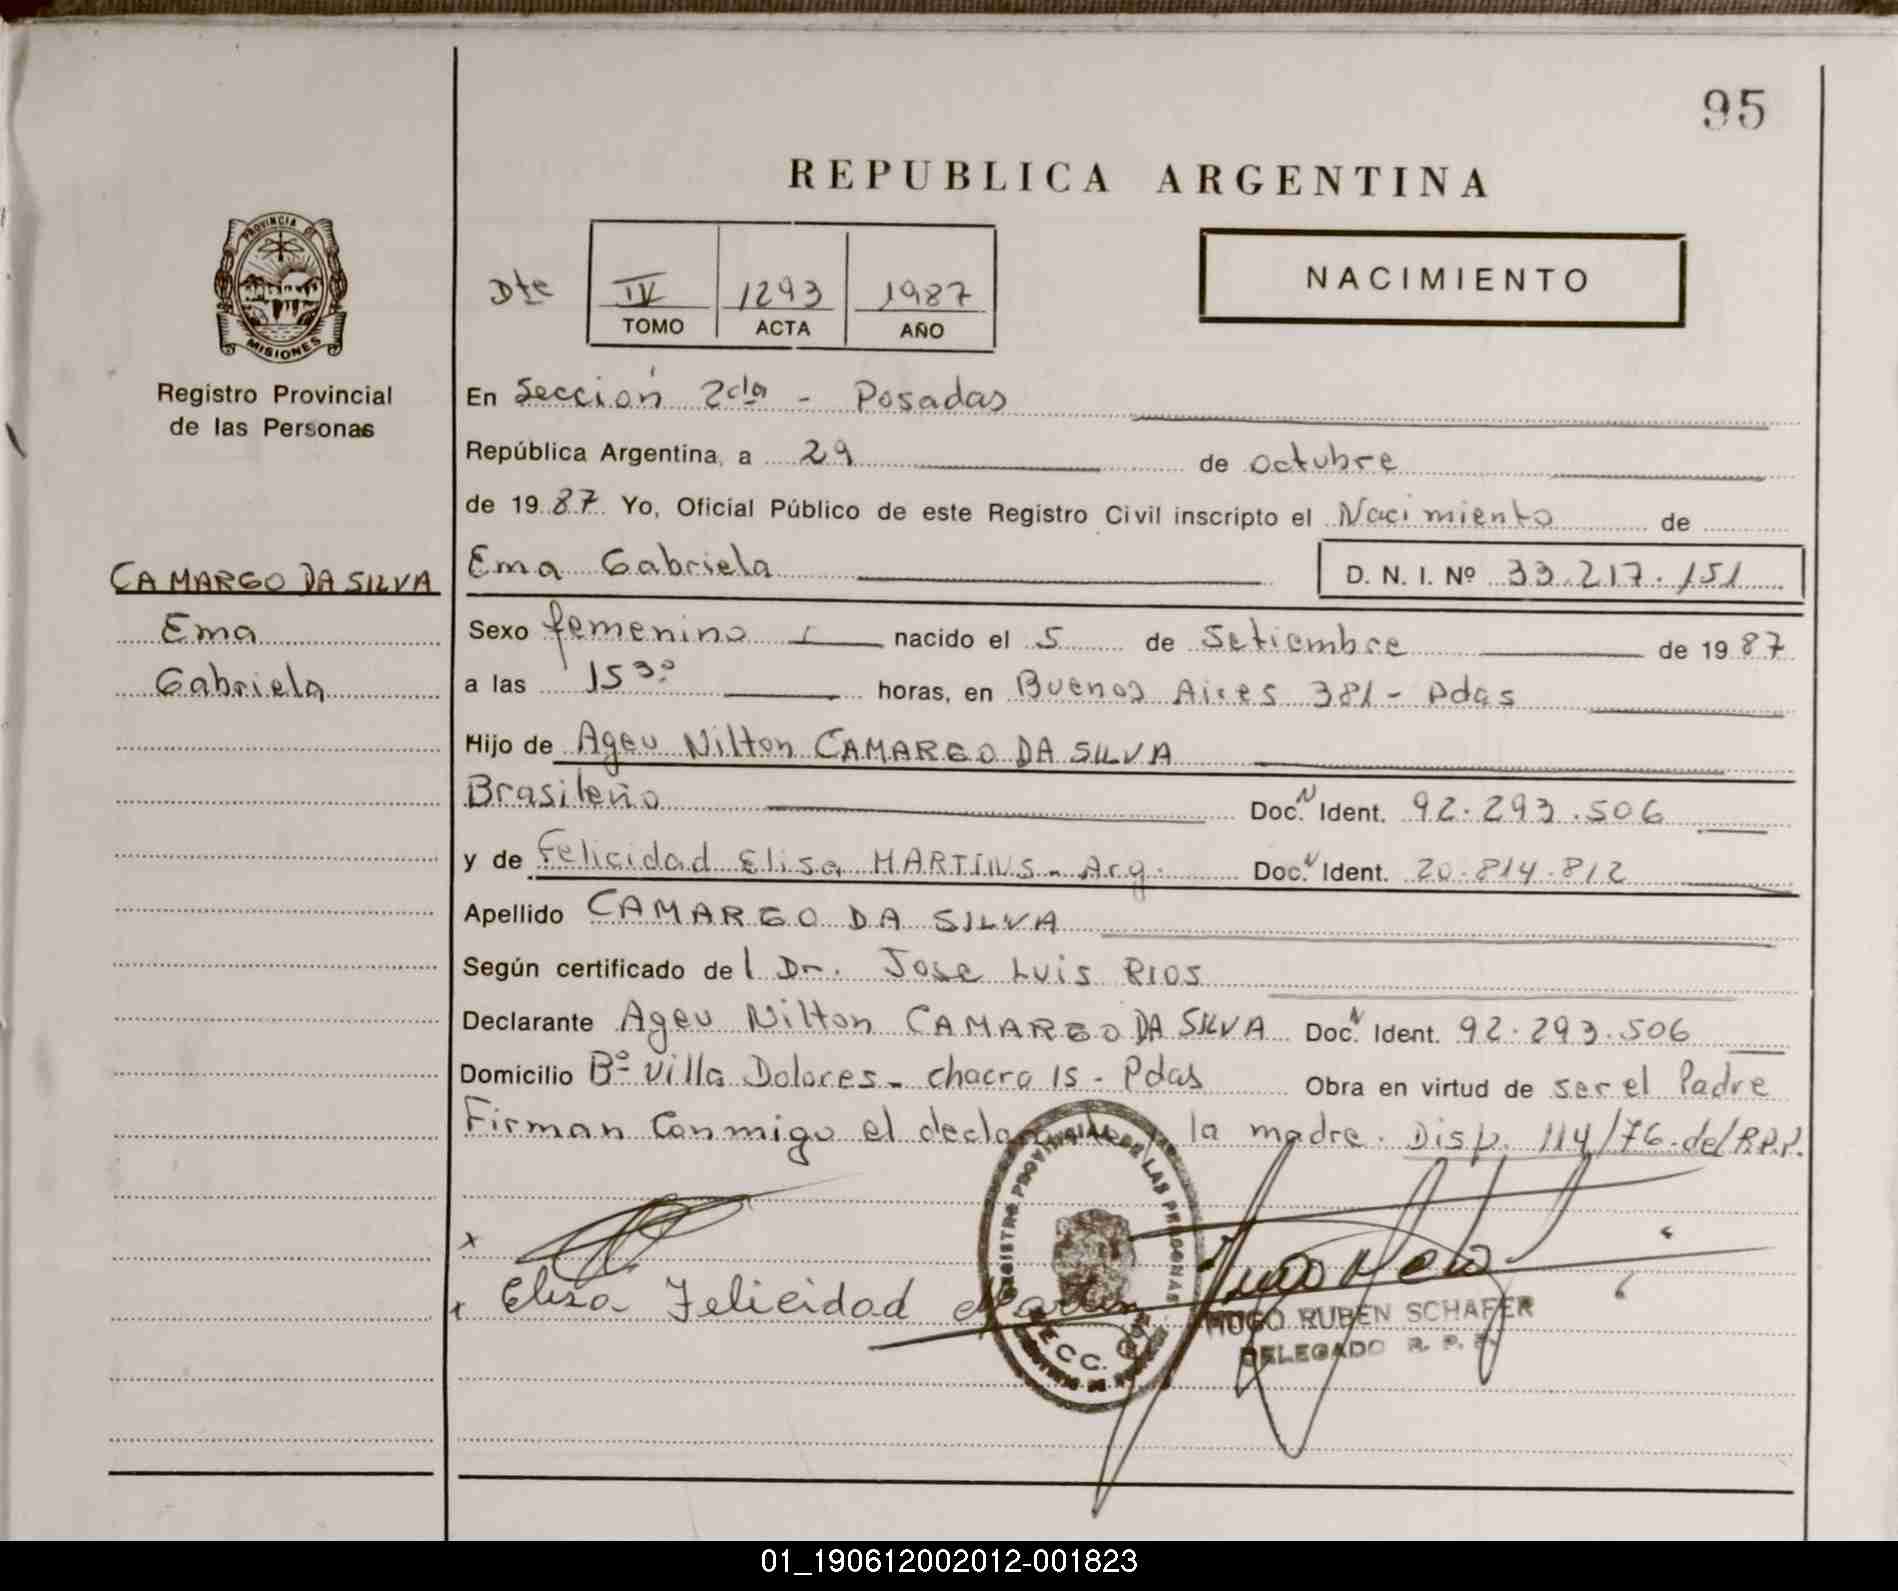 95
REPUBLICA ARGENTINA
PROVINCIA DE
MISIONES
Registro Provincial
de las Personas
Dte IV 1293 1987
TOMO ACTA AÑO
NACIMIENTO
En Sección 2da - Posadas
República Argentina, a 29 de octubre
de 1987 Yo, Oficial Público de este Registro Civil inscripto el Nacimiento de
CAMARGO DA SILVA
Ema
Gabriela
Ema Gabriela D. N. I. Nº 33.217.151
Sexo femenino nacido el 5 de Setiembre de 1987
a las 15 30 horas, en Buenos Aires 381 - Pdas
Hijo de Ageu Nilton CAMARGO DA SILVA
Brasileño Doc. N Ident. 92.293.506
y de Felicidad Elisa MARTINS - Arg. Doc. N Ident. 20.814.812
Apellido CAMARGO DA SILVA
Según certificado del Dr. Jose Luis RIOS
Declarante Ageu Nilton CAMARGO DA SILVA Doc. N Ident. 92.293.506
Domicilio Bº Villa Dolores - chacra 15 - Pdas Obra en virtud de ser el Padre
Firman Conmigo el la madre. Disp. 114/76 del R.P.P.
REGISTRO PROVINCIAL DE LAS PERSONAS
x
x Elisa Felicidad
HUGO RUBEN SCHAFER
DELEGADO R. P. P.
01_190612002012-001823